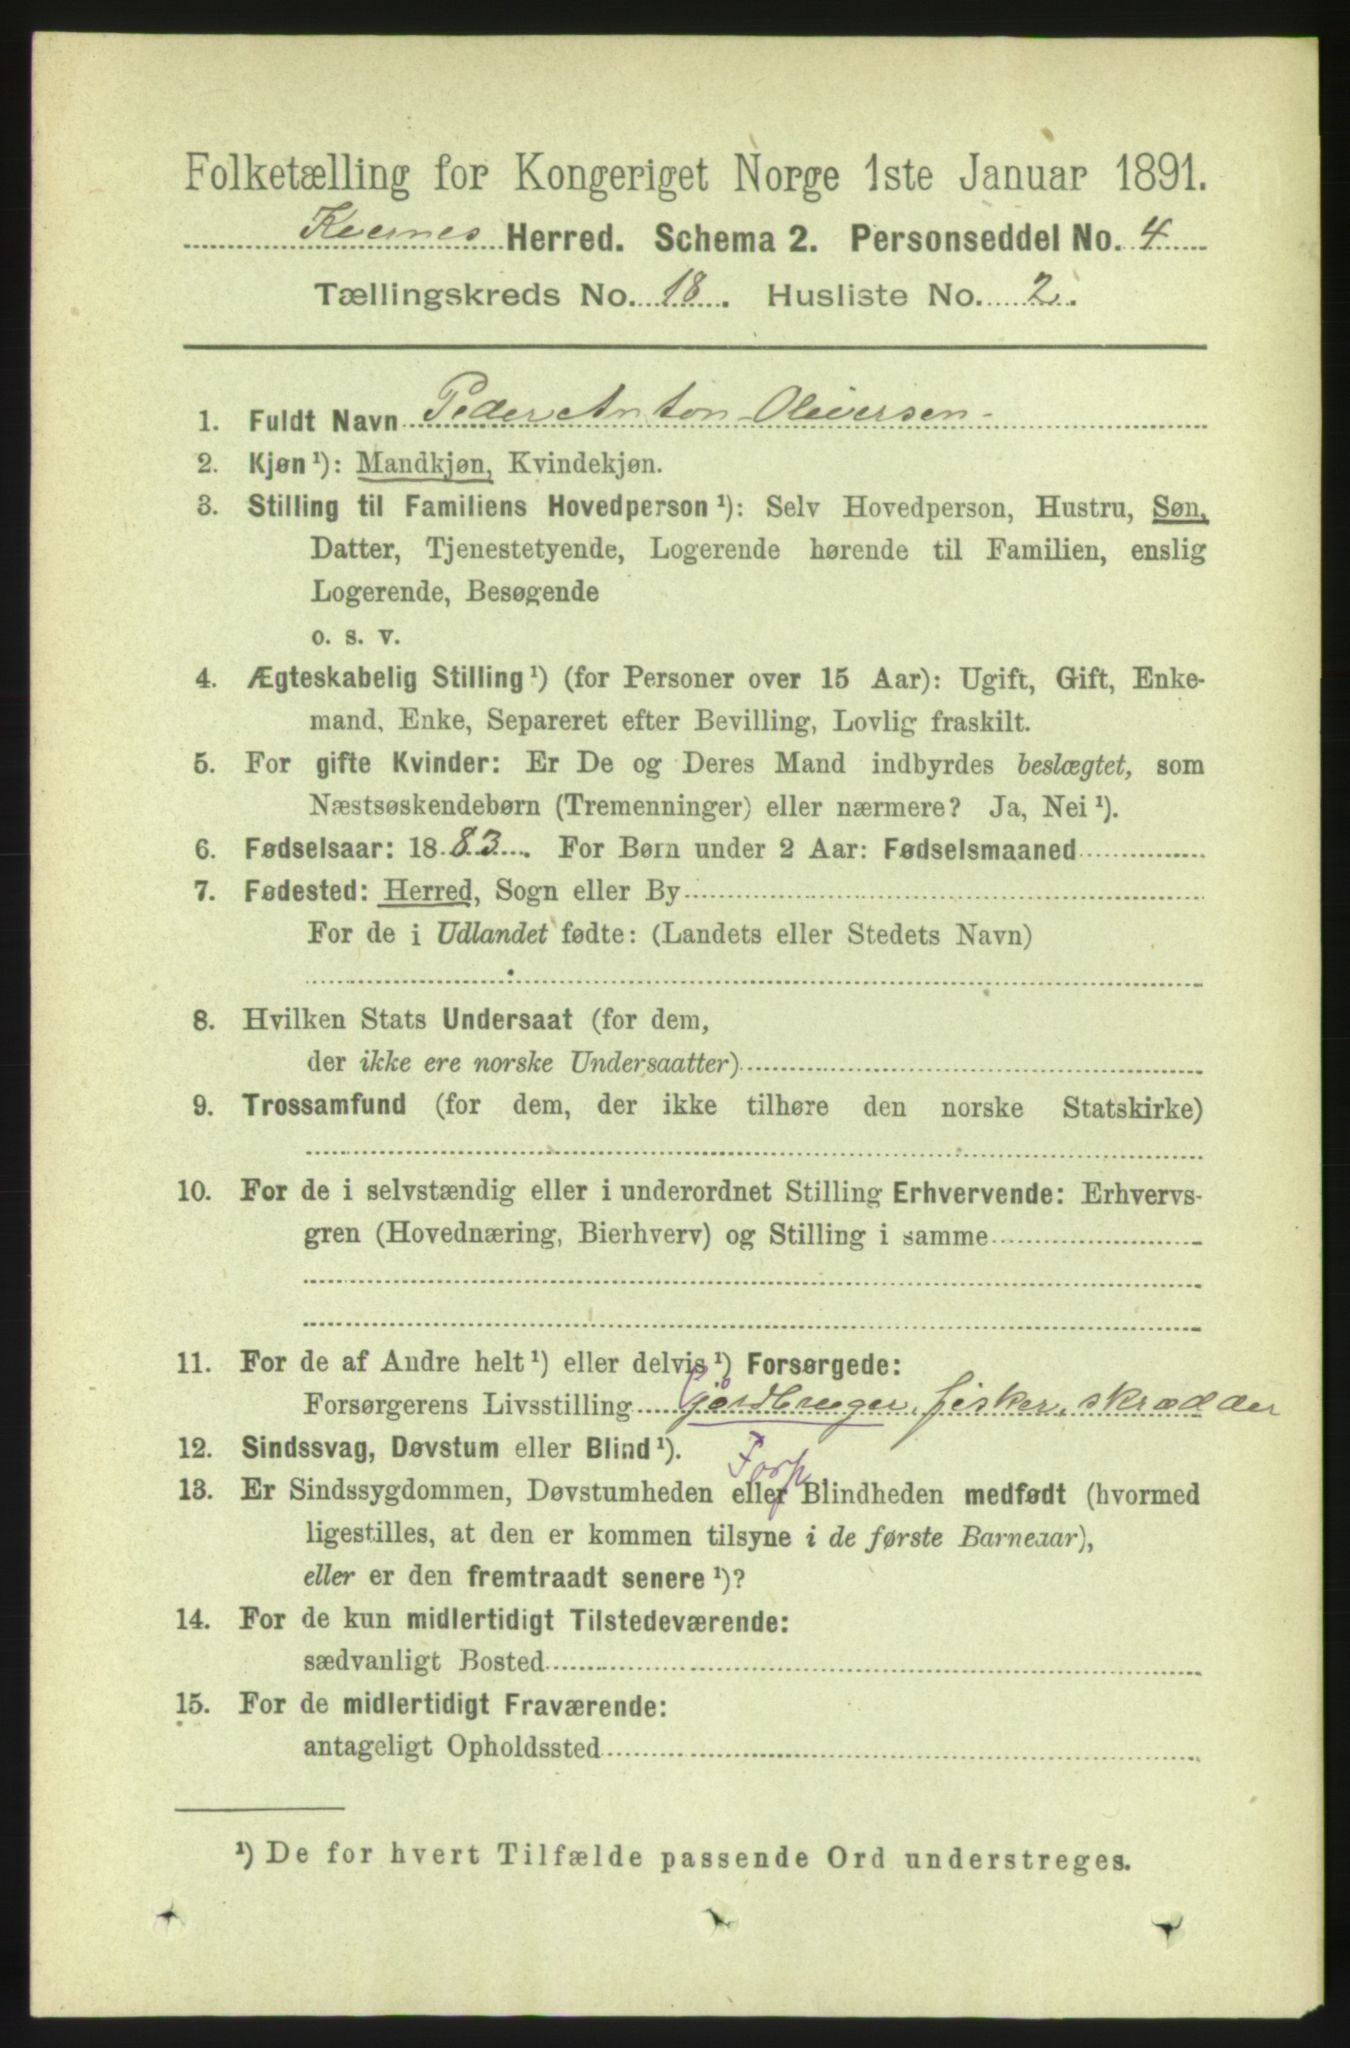 Folketælling for Kongeriget Norge 1ste Januar 1891.
Kvernes Herred. Schema 2. Personseddel No. 4
Tællingskreds No. 18. Husliste No. 2.
1. Fuldt Navn Peder Anton Oliversen
2. Kjøn¹): Mandkjøn, Kvindekjøn.
3. Stilling til Familiens Hovedperson¹): Selv Hovedperson, Hustru, Søn,
Datter, Tjenestetyende, Logerende hørende til Familien, enslig
Logerende, Besøgende
o. s. v.
4. Ægteskabelig Stilling¹) (for Personer over 15 Aar): Ugift, Gift, Enke-
mand, Enke, Separeret efter Bevilling, Lovlig fraskilt.
5. For gifte Kvinder: Er De og Deres Mand indbyrdes beslægtet, som
Næstsøskendebørn (Tremenninger) eller nærmere? Ja, Nei¹).
6. Fødselsaar: 1883. For Børn under 2 Aar: Fødselsmaaned
7. Fødested: Herred, Sogn eller By
For de i Udlandet fødte: (Landets eller Stedets Navn)
8. Hvilken Stats Undersaat (for dem,
der ikke ere norske Undersaatter)
9. Trossamfund (for dem, der ikke tilhøre den norske Statskirke)
10. For de i selvstændig eller i underordnet Stilling Erhvervende: Erhvervs-
gren (Hovednæring, Bierhverv) og Stilling i samme
11. For de af Andre helt¹) eller delvis¹) Forsørgede:
Forsørgerens Livsstilling Gjordbruger, fisker, skrædder
12. Sindssvag, Døvstum eller Blind¹). Forp
13. Er Sindssygdommen, Døvstumheden eller Blindheden medfødt (hvormed
ligestilles, at den er kommen tilsyne i de første Barneaar),
eller er den fremtraadt senere¹)?
14. For de kun midlertidigt Tilstedeværende:
sædvanligt Bosted
15. For de midlertidigt Fraværende:
antageligt Opholdssted
¹) De for hvert Tilfælde passende Ord understreges.